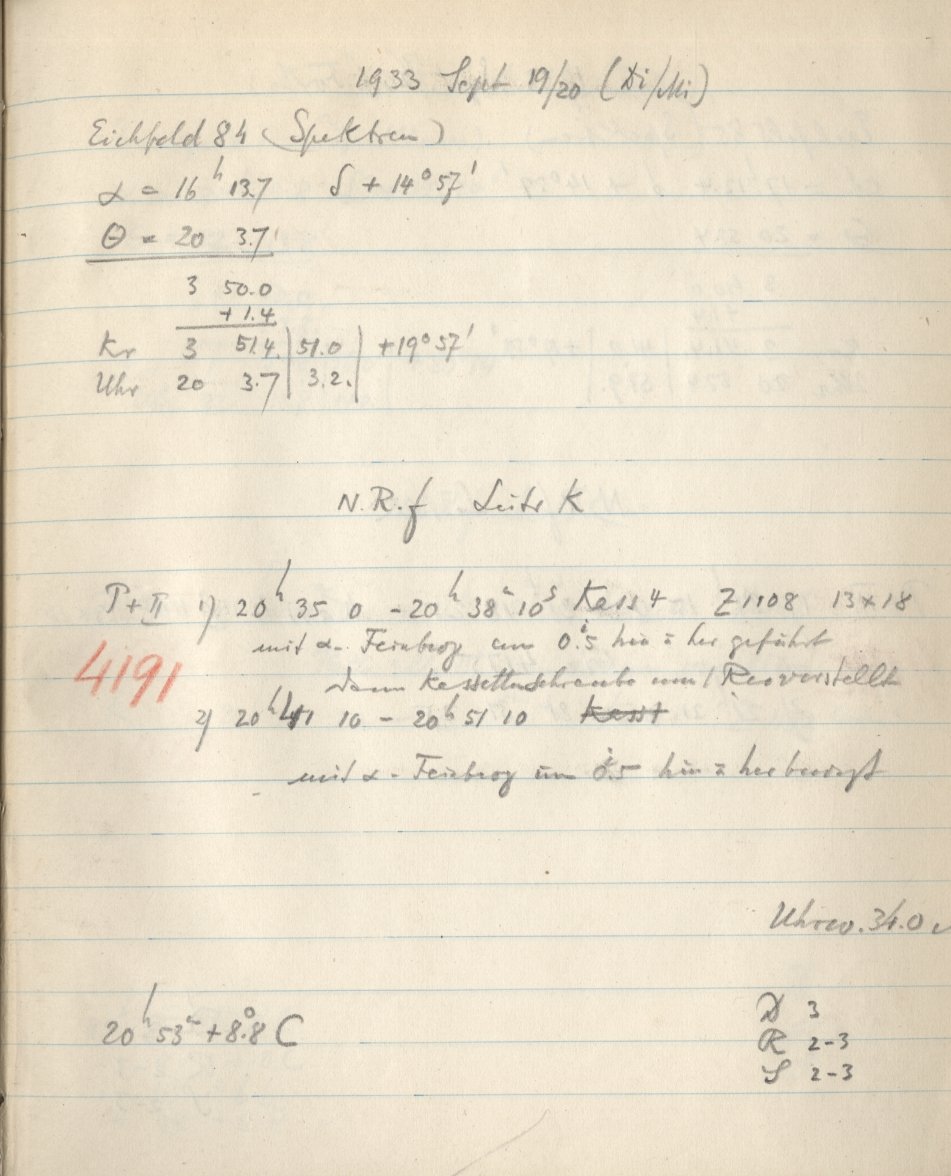 1933 Sept 19/20 (Di/Mi)
Eichfeld 84 (Spektren)
α = 16ʰ 13.7 δ + 14°57'
Θ = 20 3.7'
3 50.0
+ 1.4
Kr 3 51.4 | 51.0 | +19°57'
Uhr 20 3.7 | 3.2. |
N.R.f Leitr K
P+II 1) 20ʰ 35 0 - 20ʰ 38ᵐ 10ˢ Kass 4 Z1108 13×18
mit α - Feinbewg um 0.5 hin u her geführt
4191
dann Kassettenschraube um 1 Rev verstellt
2) 20ʰ 41 10 - 20ʰ 51 10 Kass 1
mit α - Feinbewg um 0.5 hin u her bewegt
Uhrw. 34.0
20ʰ 53ᵐ + 8.°8 C
D 3
R 2-3
S 2-3